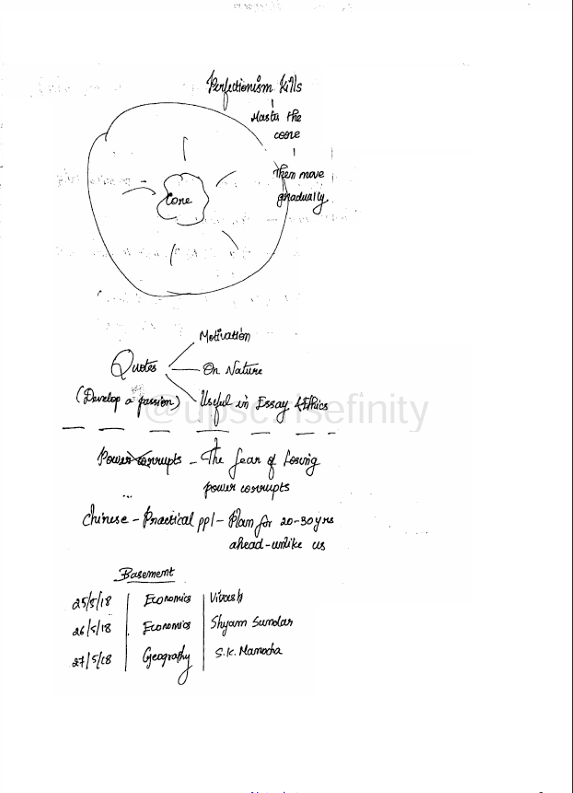 Perfectionism kills
Master the
core
Then move
gradually
Core
Motivation
Quotes
On Nature
(Develop a passion)
Useful in Essay & Ethics
@upscrisefinity
Power corrupts - The fear of losing
power corrupts
Chinese - Practical ppl - Plan for 20-30 yrs
ahead - unlike us
Basement
25/5/18 Economics
26/5/18 Economics Shyam Sundar
27/5/18 Geography S.K. Manocha